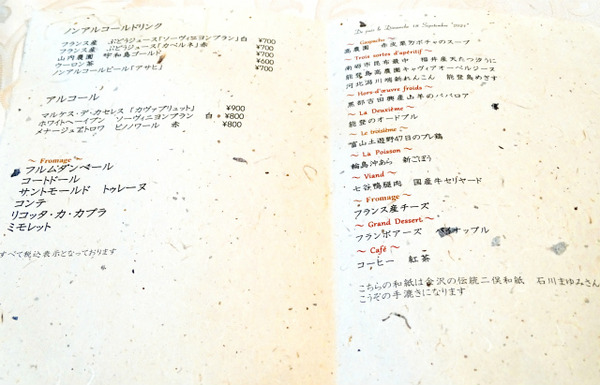 ノンアルコールドリンク
フランス産 ぶどうジュース「ソーヴィニヨンブラン」白 ¥700
フランス産 ぶどうジュース「カベルネ」赤 ¥700
山内農園 呼和島ゴールド ¥700
ウーロン茶 ¥600
ノンアルコールビール「アサヒ」 ¥700
アルコール
マルケス・デ・カセレス「カヴァブリュット」 ¥900
ホワイトヘーイブン ソーヴィニヨンブラン 白 ¥800
メナージュアトロワ ピノノワール 赤 ¥800
~ Fromage ~
フルムダンベール
コートドール
サントモールド トゥレーヌ
コンテ
リコッタ・カ・カプラ
ミモレット
すべて税込表示となっております
Le jour le Dimanche 19 Septembre "2021"
~ Gaspacho ~
高農園 赤皮栗カボチャのスープ
~ Trois sortes d'apéritif ~
南郷市昆布最中 福井産天たつ汐うに
能登島高農園キャヴィアオーベルジーヌ
河北潟川端新れんこん 能登島めぎす
~ Hors-d'œuvre froids ~
黒部吉田興産山羊のババロア
~ La Deuxième ~
能登のオードブル
~ Le troisième ~
富山土遊野47日のプレ鶏
~ La Poisson ~
輪島沖あら 新ごぼう
~ Viand ~
七谷鴨腿肉 国産牛セリヤード
~ Fromage ~
フランス産チーズ
~ Grand Dessert ~
フランボアーズ パイナップル
~ Café ~
コーヒー 紅茶
こちらの和紙は金沢の伝統二俣和紙 石川まゆみさん
こうぞの手漉きになります